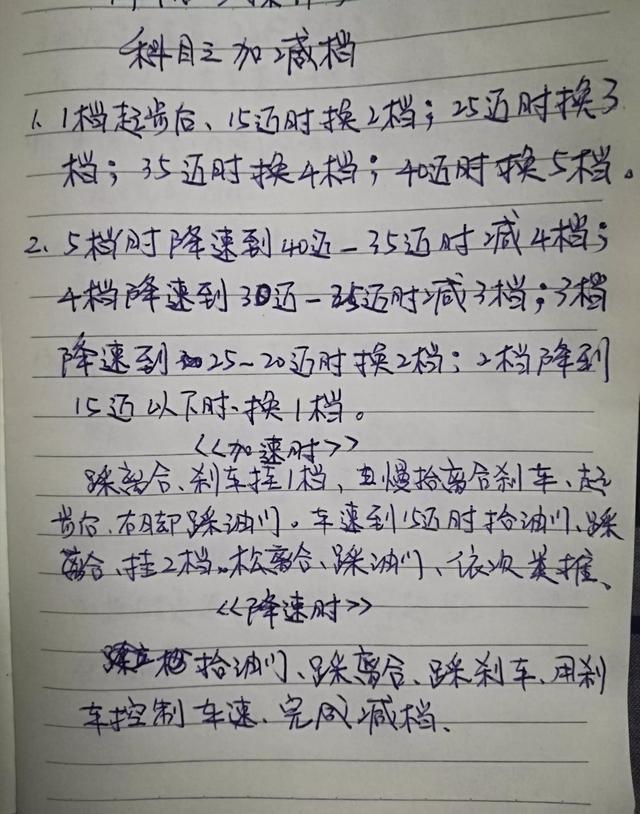 科目三加减档
1. 1档起步后、15迈时换2档；25迈时换3
档；35迈时换4档；40迈时换5档。
2. 5档时降速到40迈－35迈时减4档；
4档降速到30迈－25迈时减3档；3档
降速到25－20迈时换2档；2档降到
15迈以下时、换1档。
<<加速时>>
踩离合、刹车挂1档、且慢抬离合刹车、起
步后、右脚踩油门。车速到15迈时抬油门、踩
离合、挂2档。松离合、踩油门、依次类推、
<<降速时>>
抬油门、踩离合、踩刹车、用刹
车控制车速、完成减档、